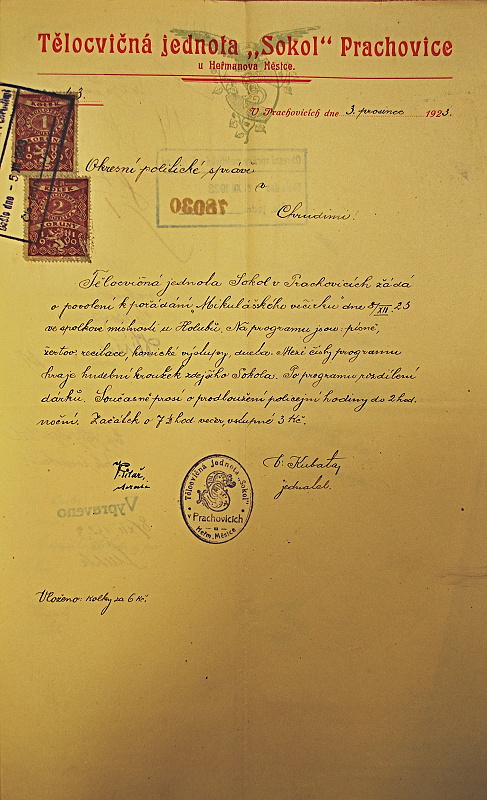 Tělocvičná jednota „Sokol“ Prachovice
u Heřmanova Městce.
V Prachovicích dne 3. prosince 1923.
Okresní politické správě
v
Chrudimi!
18030
Tělocvičná jednota Sokol v Prachovicích žádá
o povolení k pořádání „Mikulášského večírku“ dne 5/XII 23
ve spolkové místnosti u Holubů. Na programu jsou: písně,
žertov. recitace, komické výstupy, dueta. Mezi čísly programu
hraje hudební kroužek zdejšího Sokola. Po programu rozdílení
dárků. Současně prosí o prodloužení policejní hodiny do 2 hod.
noční. Začátek o 7½ hod večer, vstupné 3 Kč.
Kubata
jednatel.
Tělocvičná jednota „Sokol“
v Prachovicích
u
Heřm. Městce
Vypraveno
Vloženo: Kolky za 6 Kč.